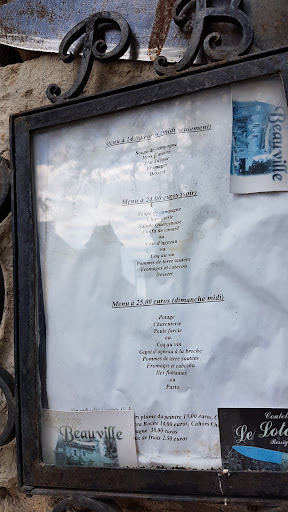 P B
Beauville
Menu à 14,00 euros (midi seulement)
Soupe de campagne
Hors d'œuvre
Plat du jour
Fromages
Dessert
Menu à 24,00 euros (soir)
Soupe de campagne
Charcuterie
Salade Quercynoise
Confit de canard
ou
Civet d'agneau
ou
Coq au vin
Pommes de terre sautées
Fromages et cabecou
Dessert
Menu à 25,00 euros (dimanche midi)
Potage
Charcuterie
Poule farcie
ou
Coq au vin
Gigot d'agneau à la broche
Pommes de terre sautées
Fromages et cabecou
Iles flottantes
ou
Pastis
plume du peintre 13,00 euros,
Roche 14,00 euros, Cahors
30,00 euros
de fruits 2,50 euros
Beauville
Le